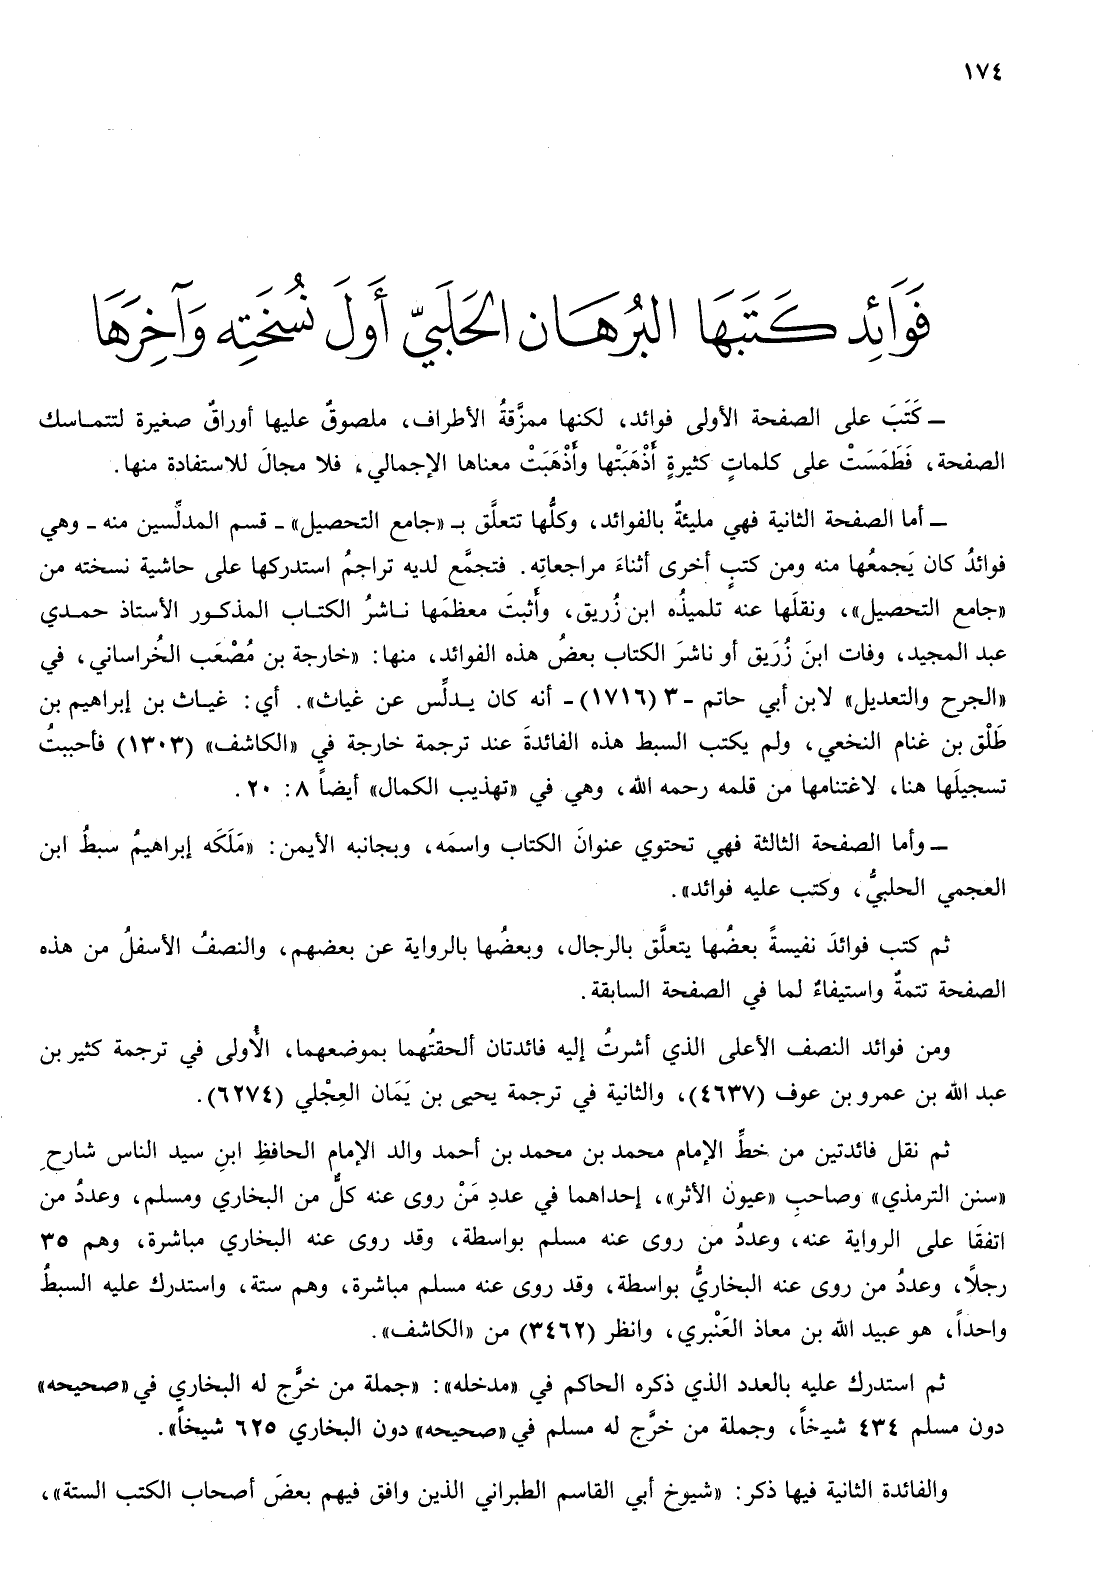 ١٧٤
فَوَائِد كَتَبَهَا البُرهَان الحَلَبيّ أَولَ نُسخَتِه وَآخِرهَا
ـ كَتَبَ على الصفحة الأولى فوائد، لكنها ممزَّقةُ الأطراف، ملصوقٌ عليها أوراقٌ صغيرة لتتماسك
الصفحة، فَطَمَسَتْ على كلماتٍ كثيرةٍ أَذْهَبَتْها وأَذْهَبَتْ معناها الإجمالي، فلا مجالَ للاستفادة منها.
ـ أما الصفحة الثانية فهي مليئةٌ بالفوائد، وكلُّها تتعلَّق بـ «جامع التحصيل» ـ قسم المدلِّسين منه ـ وهي
فوائدُ كان يَجمعُها منه ومن كتبٍ أخرى أثناءَ مراجعاتِه. فتجمَّع لديه تراجمُ استدركها على حاشية نسخته من
«جامع التحصيل»، ونقلَها عنه تلميذُه ابن زُريق، وأَثبتَ معظمَها ناشرُ الكتاب المذكور الأستاذ حمدي
عبد المجيد، وفات ابنَ زُرَيق أو ناشرَ الكتاب بعضُ هذه الفوائد، منها: «خارجة بن مُصْعَب الخُراساني، في
«الجرح والتعديل» لابن أبي حاتم ـ ٣ (١٧١٦) ـ أنه كان يدلِّس عن غياث». أي: غياث بن إبراهيم بن
طَلْق بن غنام النخعي، ولم يكتب السبط هذه الفائدةَ عند ترجمة خارجة في «الكاشف» (١٣٠٣) فأحببتُ
تسجيلَها هنا، لاغتنامها من قلمه رحمه الله، وهي في «تهذيب الكمال» أيضاً ٨: ٢٠.
ـ وأما الصفحة الثالثة فهي تحتوي عنوانَ الكتاب واسمَه، وبجانبه الأيمن: «مَلَكَه إبراهيمُ سبطُ ابن
العجمي الحلبيُّ، وكتب عليه فوائد».
ثم كتب فوائدَ نفيسةً بعضُها يتعلَّق بالرجال، وبعضُها بالرواية عن بعضهم، والنصفُ الأسفلُ من هذه
الصفحة تتمةٌ واستيفاءٌ لما في الصفحة السابقة.
ومن فوائد النصف الأعلى الذي أشرتُ إليه فائدتان ألحقتُهما بموضعهما، الأُولى في ترجمة كثير بن
عبد الله بن عمرو بن عوف (٤٦٣٧)، والثانية في ترجمة يحيى بن يَمَان العِجْلي (٦٢٧٤).
ثم نقل فائدتين من خطِّ الإمام محمد بن محمد بن أحمد والد الإمام الحافظِ ابنِ سيد الناس شارحِ
«سنن الترمذي» وصاحبِ «عيون الأثر»، إحداهما في عددِ مَنْ روى عنه كلٌّ من البخاري ومسلم، وعددُ من
اتفقَا على الرواية عنه، وعددُ من روى عنه مسلم بواسطة، وقد روى عنه البخاري مباشرة، وهم ٣٥
رجلاً، وعددُ من روى عنه البخاريُّ بواسطة، وقد روى عنه مسلم مباشرة، وهم ستة، واستدرك عليه السبطُ
واحداً، هو عبيد الله بن معاذ العَنْبري، وانظر (٣٤٦٢) من «الكاشف».
ثم استدرك عليه بالعدد الذي ذكره الحاكم في «مدخله»: «جملة من خرَّج له البخاري في «صحيحه»
دون مسلم ٤٣٤ شيخاً، وجملة من خرَّج له مسلم في «صحيحه» دون البخاري ٦٢٥ شيخاً».
والفائدة الثانية فيها ذكر: «شيوخ أبي القاسم الطبراني الذين وافق فيهم بعضَ أصحاب الكتب الستة»،